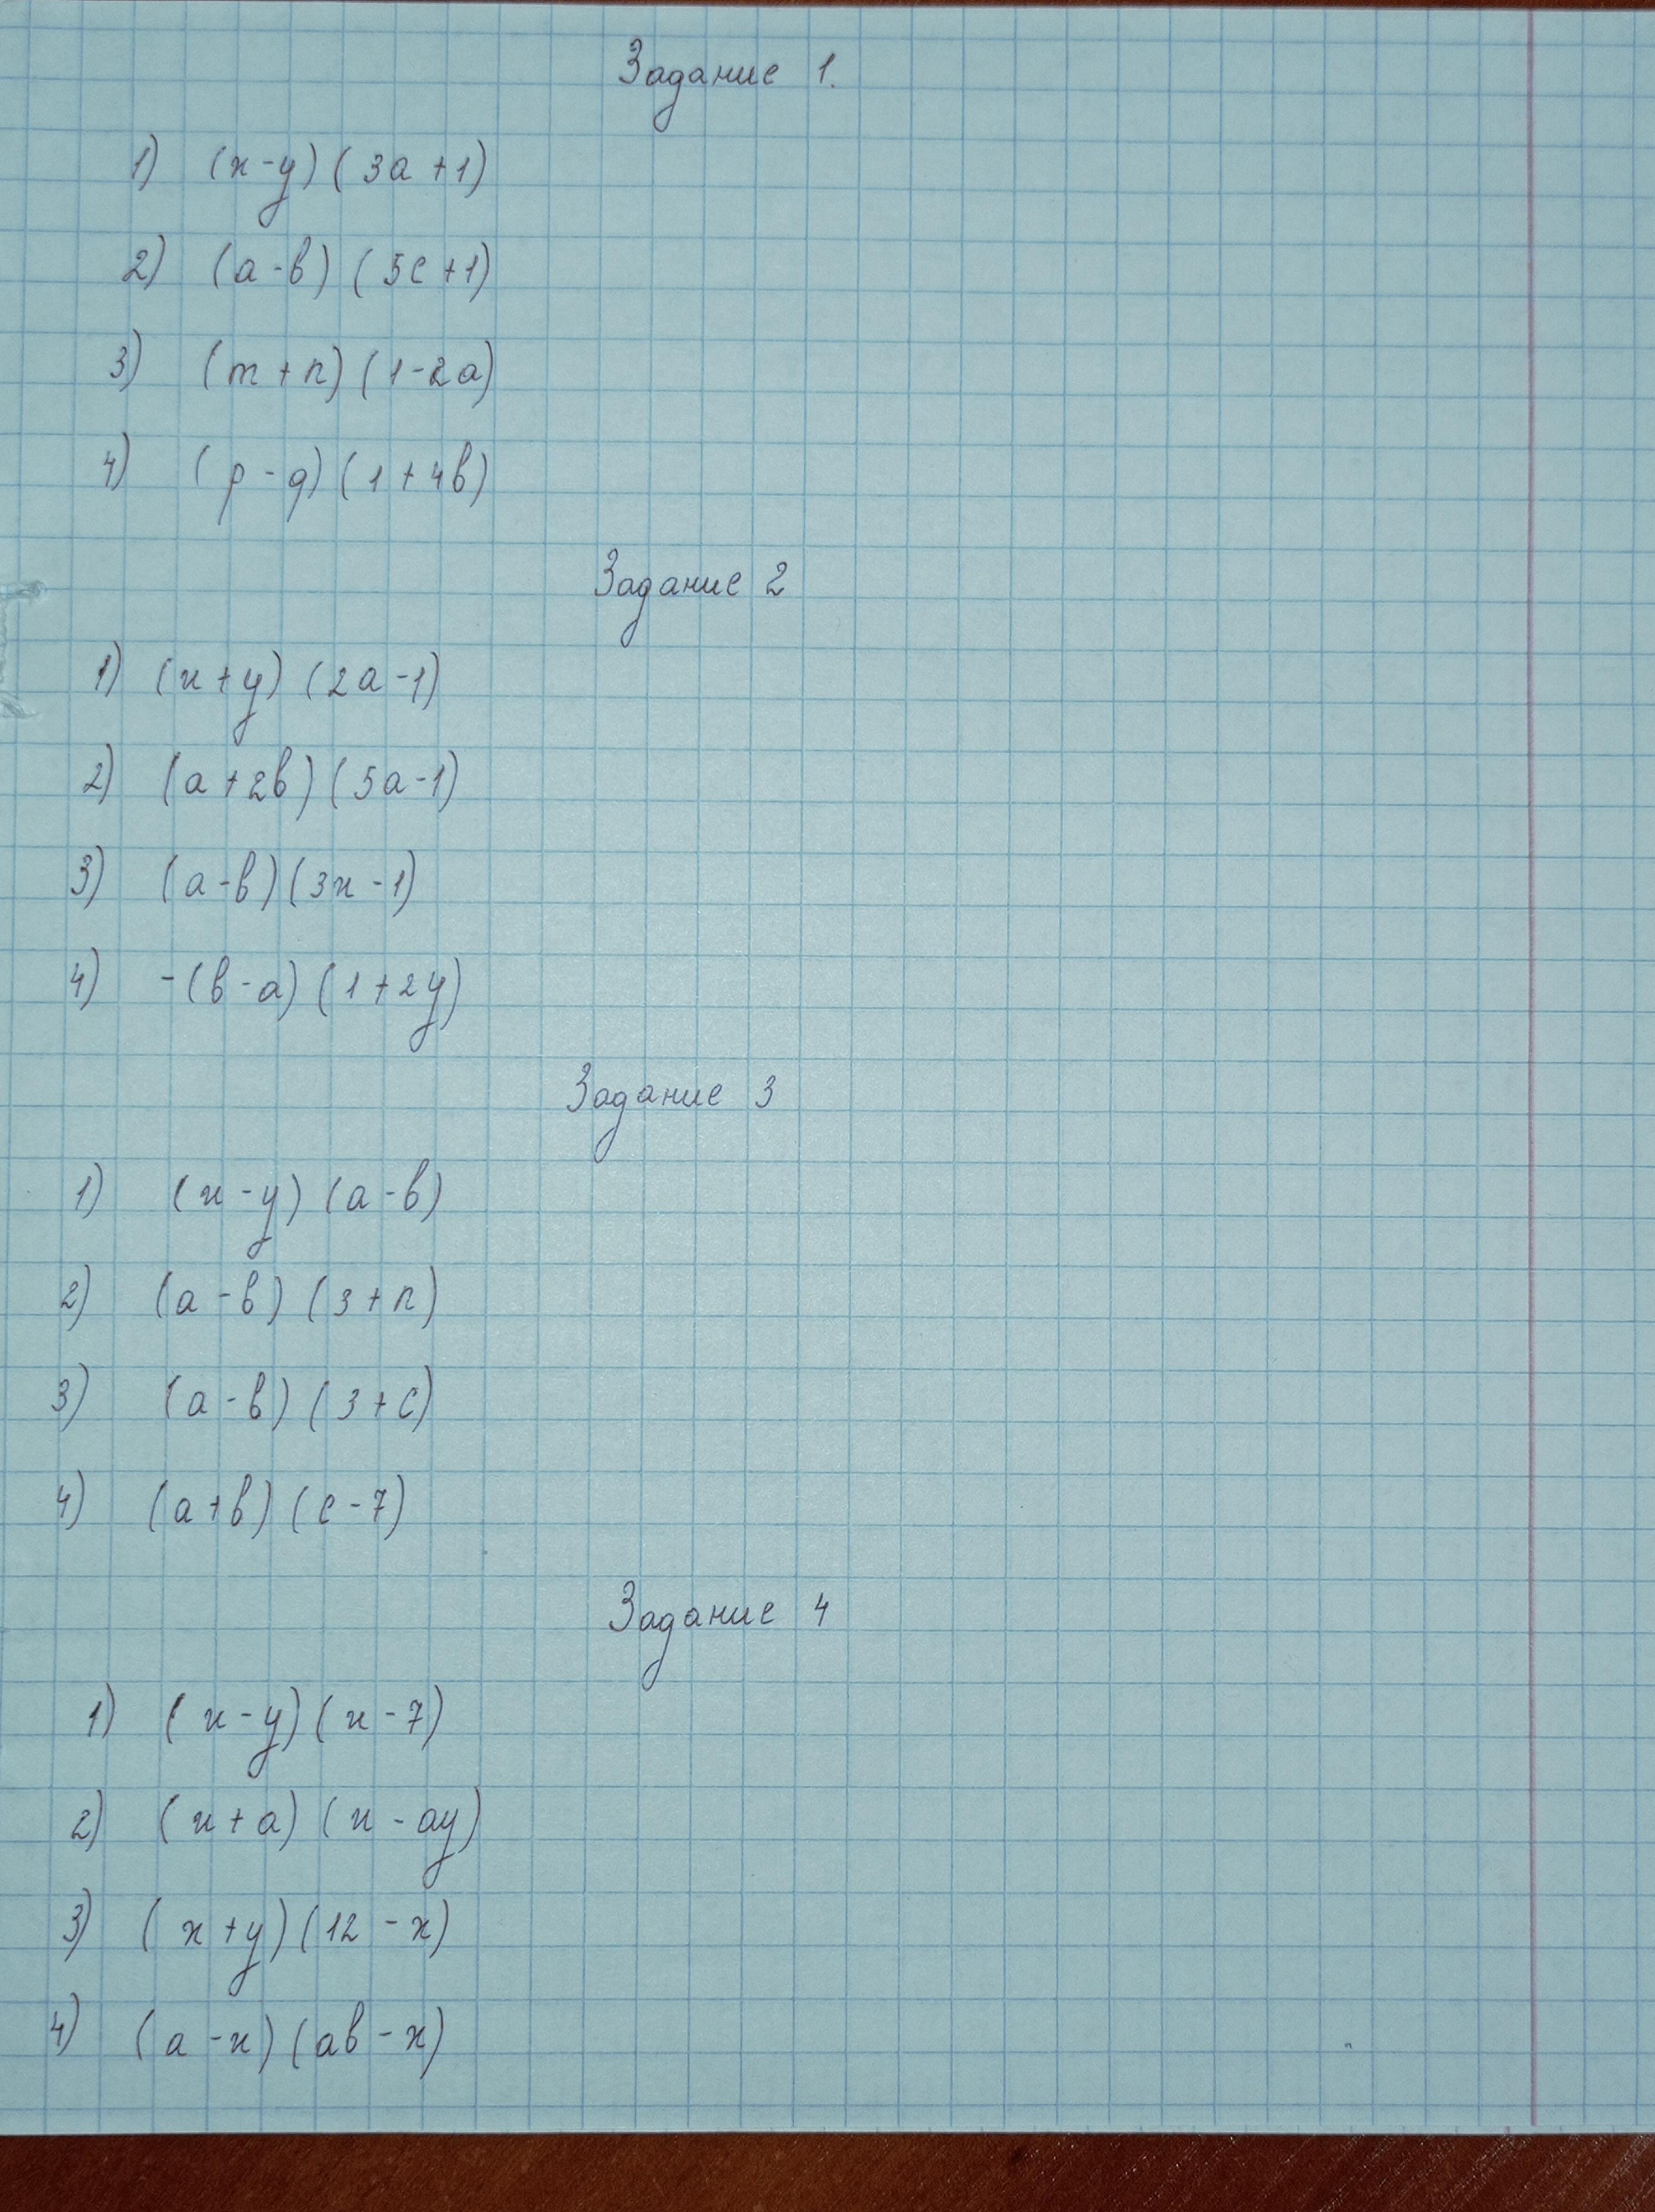 Задание 1.
1) (x-y)(3a+1)
2) (a-b)(5c+1)
3) (m+n)(1-2a)
4) (p-q)(1+4b)
Задание 2
1) (x+y)(2a-1)
2) (a+2b)(5a-1)
3) (a-b)(3x-1)
4) -(b-a)(1+2y)
Задание 3
1) (x-y)(a-b)
2) (a-b)(3+n)
3) (a-b)(3+c)
4) (a+b)(c-7)
Задание 4
1) (x-y)(x-7)
2) (x+a)(x-ay)
3) (x+y)(12-x)
4) (a-x)(ab-x)